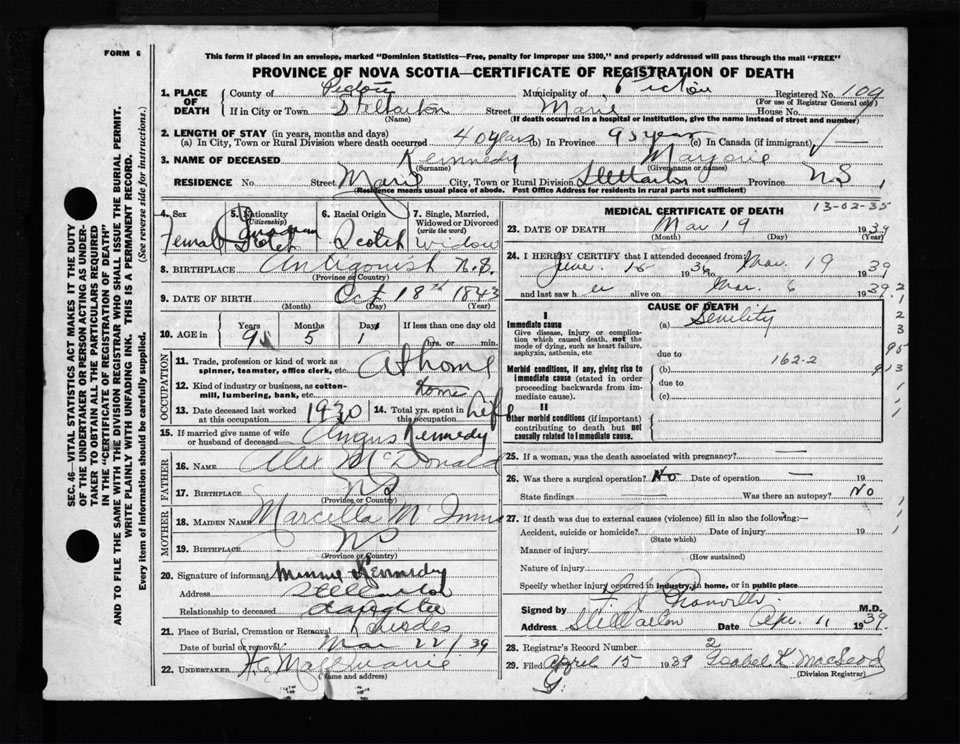 FORM 6
This form if placed in an envelope, marked "Dominion Statistics—Free, penalty for improper use $300," and properly addressed will pass through the mail "FREE"
PROVINCE OF NOVA SCOTIA—CERTIFICATE OF REGISTRATION OF DEATH
1. PLACE OF DEATH County of Pictou Municipality of Pictou Registered No. 109
(For use of Registrar General only)
If in City or Town Stellarton Street Marie House No.
(Name) (If death occurred in a hospital or institution, give the name instead of street and number)
2. LENGTH OF STAY (in years, months and days)
(a) In City, Town or Rural Division where death occurred 40 years (b) In Province 95 years (c) In Canada (if immigrant)
3. NAME OF DECEASED Kennedy Marjorie
(Surname) (Given name or names)
RESIDENCE No. Street Marie City, Town or Rural Division Stellarton Province N.S
(Residence means usual place of abode. Post Office Address for residents in rural parts not sufficient)
4. Sex Female
5. Nationality (Citizenship) Scotch
6. Racial Origin Scotch
7. Single, Married, Widowed or Divorced (write the word) Widow
8. BIRTHPLACE Antigonish N.S.
(Province or Country)
9. DATE OF BIRTH Oct 18th 1843
(Month) (Day) (Year)
10. AGE in Years Months Days If less than one day old
5 1 hrs. or min.
OCCUPATION
11. Trade, profession or kind of work as spinner, teamster, office clerk, etc. At home
12. Kind of industry or business, as cotton-mill, lumbering, bank, etc. Home
13. Date deceased last worked at this occupation 1930 14. Total yrs. spent in this occupation Life
15. If married give name of wife or husband of deceased Angus Kennedy
FATHER
16. NAME Alex McDonald
17. BIRTHPLACE NS
(Province or Country)
MOTHER
18. MAIDEN NAME Marcella McInnis
19. BIRTHPLACE NS
(Province or Country)
20. Signature of informant Minnie Kennedy
Address Stellarton
Relationship to deceased daughter
21. Place of Burial, Cremation or Removal
Date of burial or removal Mar 22/39
22. UNDERTAKER
(Name and address)
MEDICAL CERTIFICATE OF DEATH
13-02-35
23. DATE OF DEATH Mar 19 1939
(Month) (Day) (Year)
24. I HEREBY CERTIFY that I attended deceased from
June 15 1936 Mar. 19 1939
and last saw her alive on Mar. 6 1939.
CAUSE OF DEATH
I
Immediate cause (a) Senility
Give disease, injury or complication which caused death, not the mode of dying, such as heart failure, asphyxia, asthenia, etc
due to
162-2
Morbid conditions, if any, giving rise to immediate cause (stated in order proceeding backwards from immediate cause) (b)
due to
(c)
II
Other morbid conditions (if important) contributing to death but not causally related to immediate cause.
25. If a woman, was the death associated with pregnancy? —
26. Was there a surgical operation? No Date of operation — 19
State findings — Was there an autopsy? No
27. If death was due to external causes (violence) fill in also the following:—
Accident, suicide or homicide? Date of injury 19
(State which)
Manner of injury
(How sustained)
Nature of injury
Specify whether injury occurred in industry, in home, or in public place
Signed by Granville M.D.
Address Stellarton Date Apr. 11 1939.
28. Registrar's Record Number 2
29. Filed April 15 1939 Isabel K MacLeod
(Division Registrar)
SEC. 46—VITAL STATISTICS ACT MAKES IT THE DUTY
OF THE UNDERTAKER OR PERSON ACTING AS UNDERTAKER TO OBTAIN ALL THE PARTICULARS REQUIRED
IN THE "CERTIFICATE OF REGISTRATION OF DEATH"
AND TO FILE THE SAME WITH THE DIVISION REGISTRAR WHO SHALL ISSUE THE BURIAL PERMIT.
WRITE PLAINLY WITH UNFADING INK. THIS IS A PERMANENT RECORD.
Every item of information should be carefully supplied. (See reverse side for instructions.)